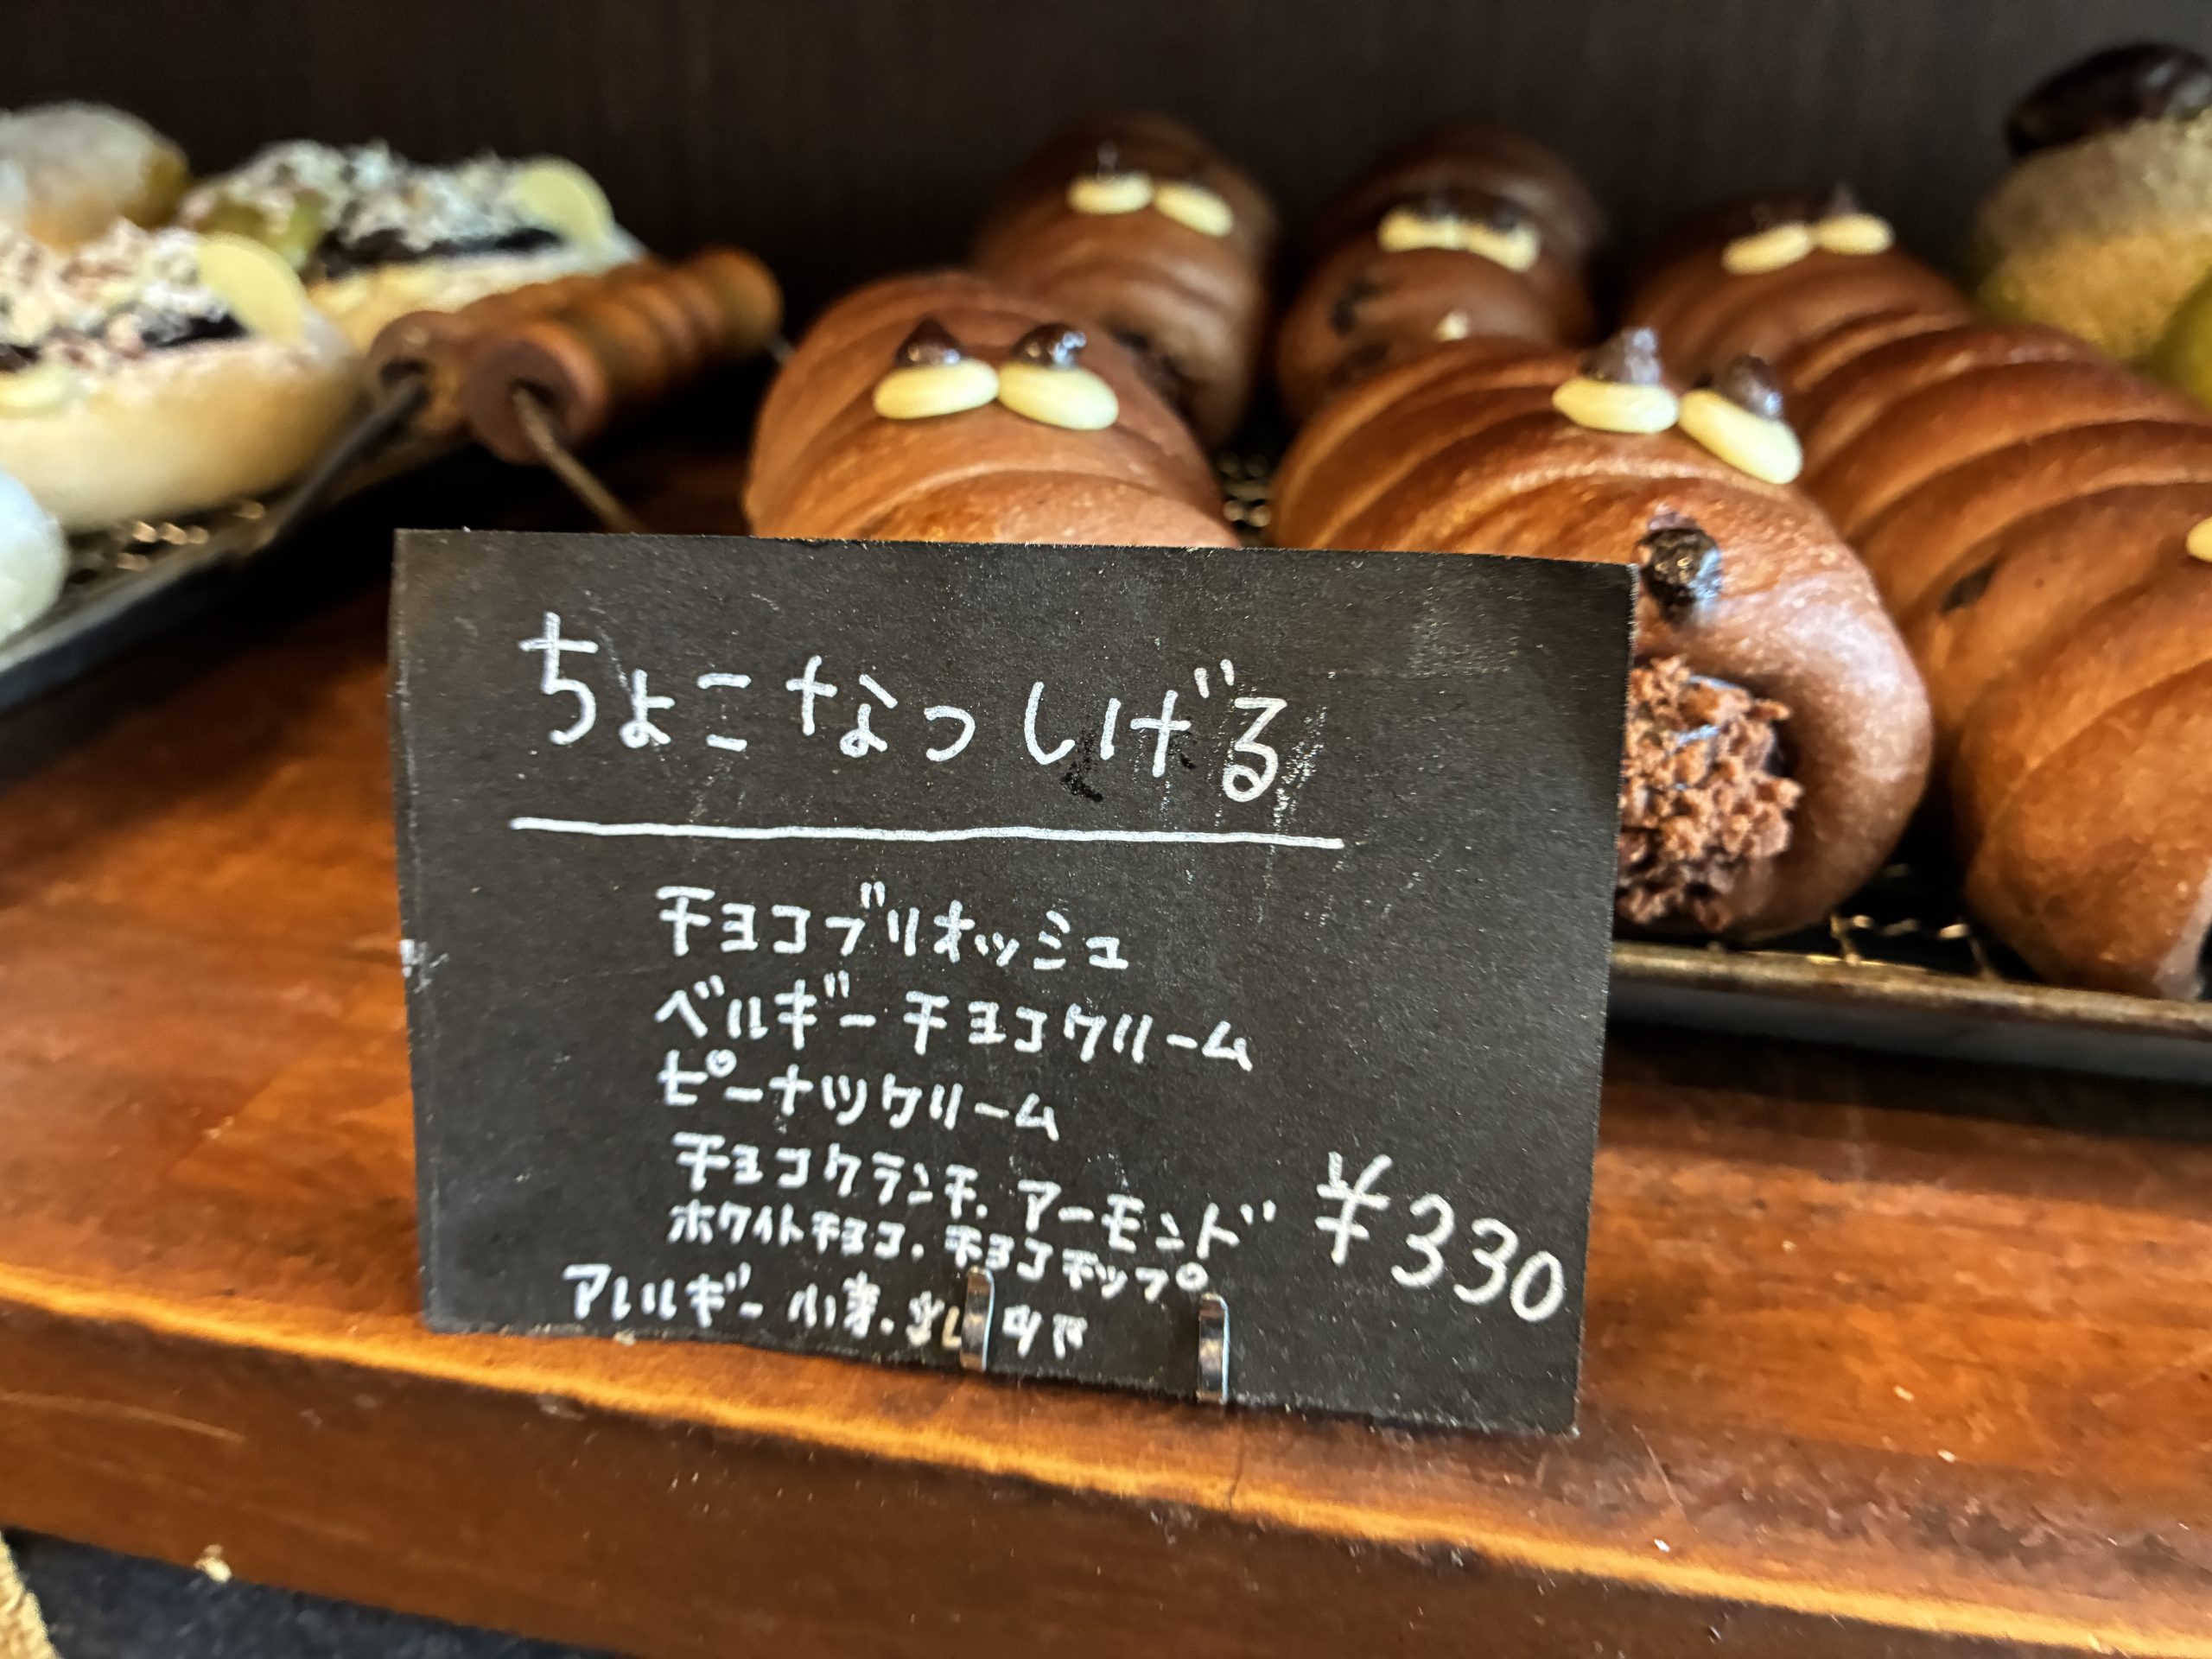 ちょこなつ しげる
チョコブリオッシュ
ベルギーチョコクリーム
ピーナツクリーム
チョコクランチ、アーモンド
ホワイトチョコ、チョコチップ
¥330
アレルギー 小麦、乳 卵